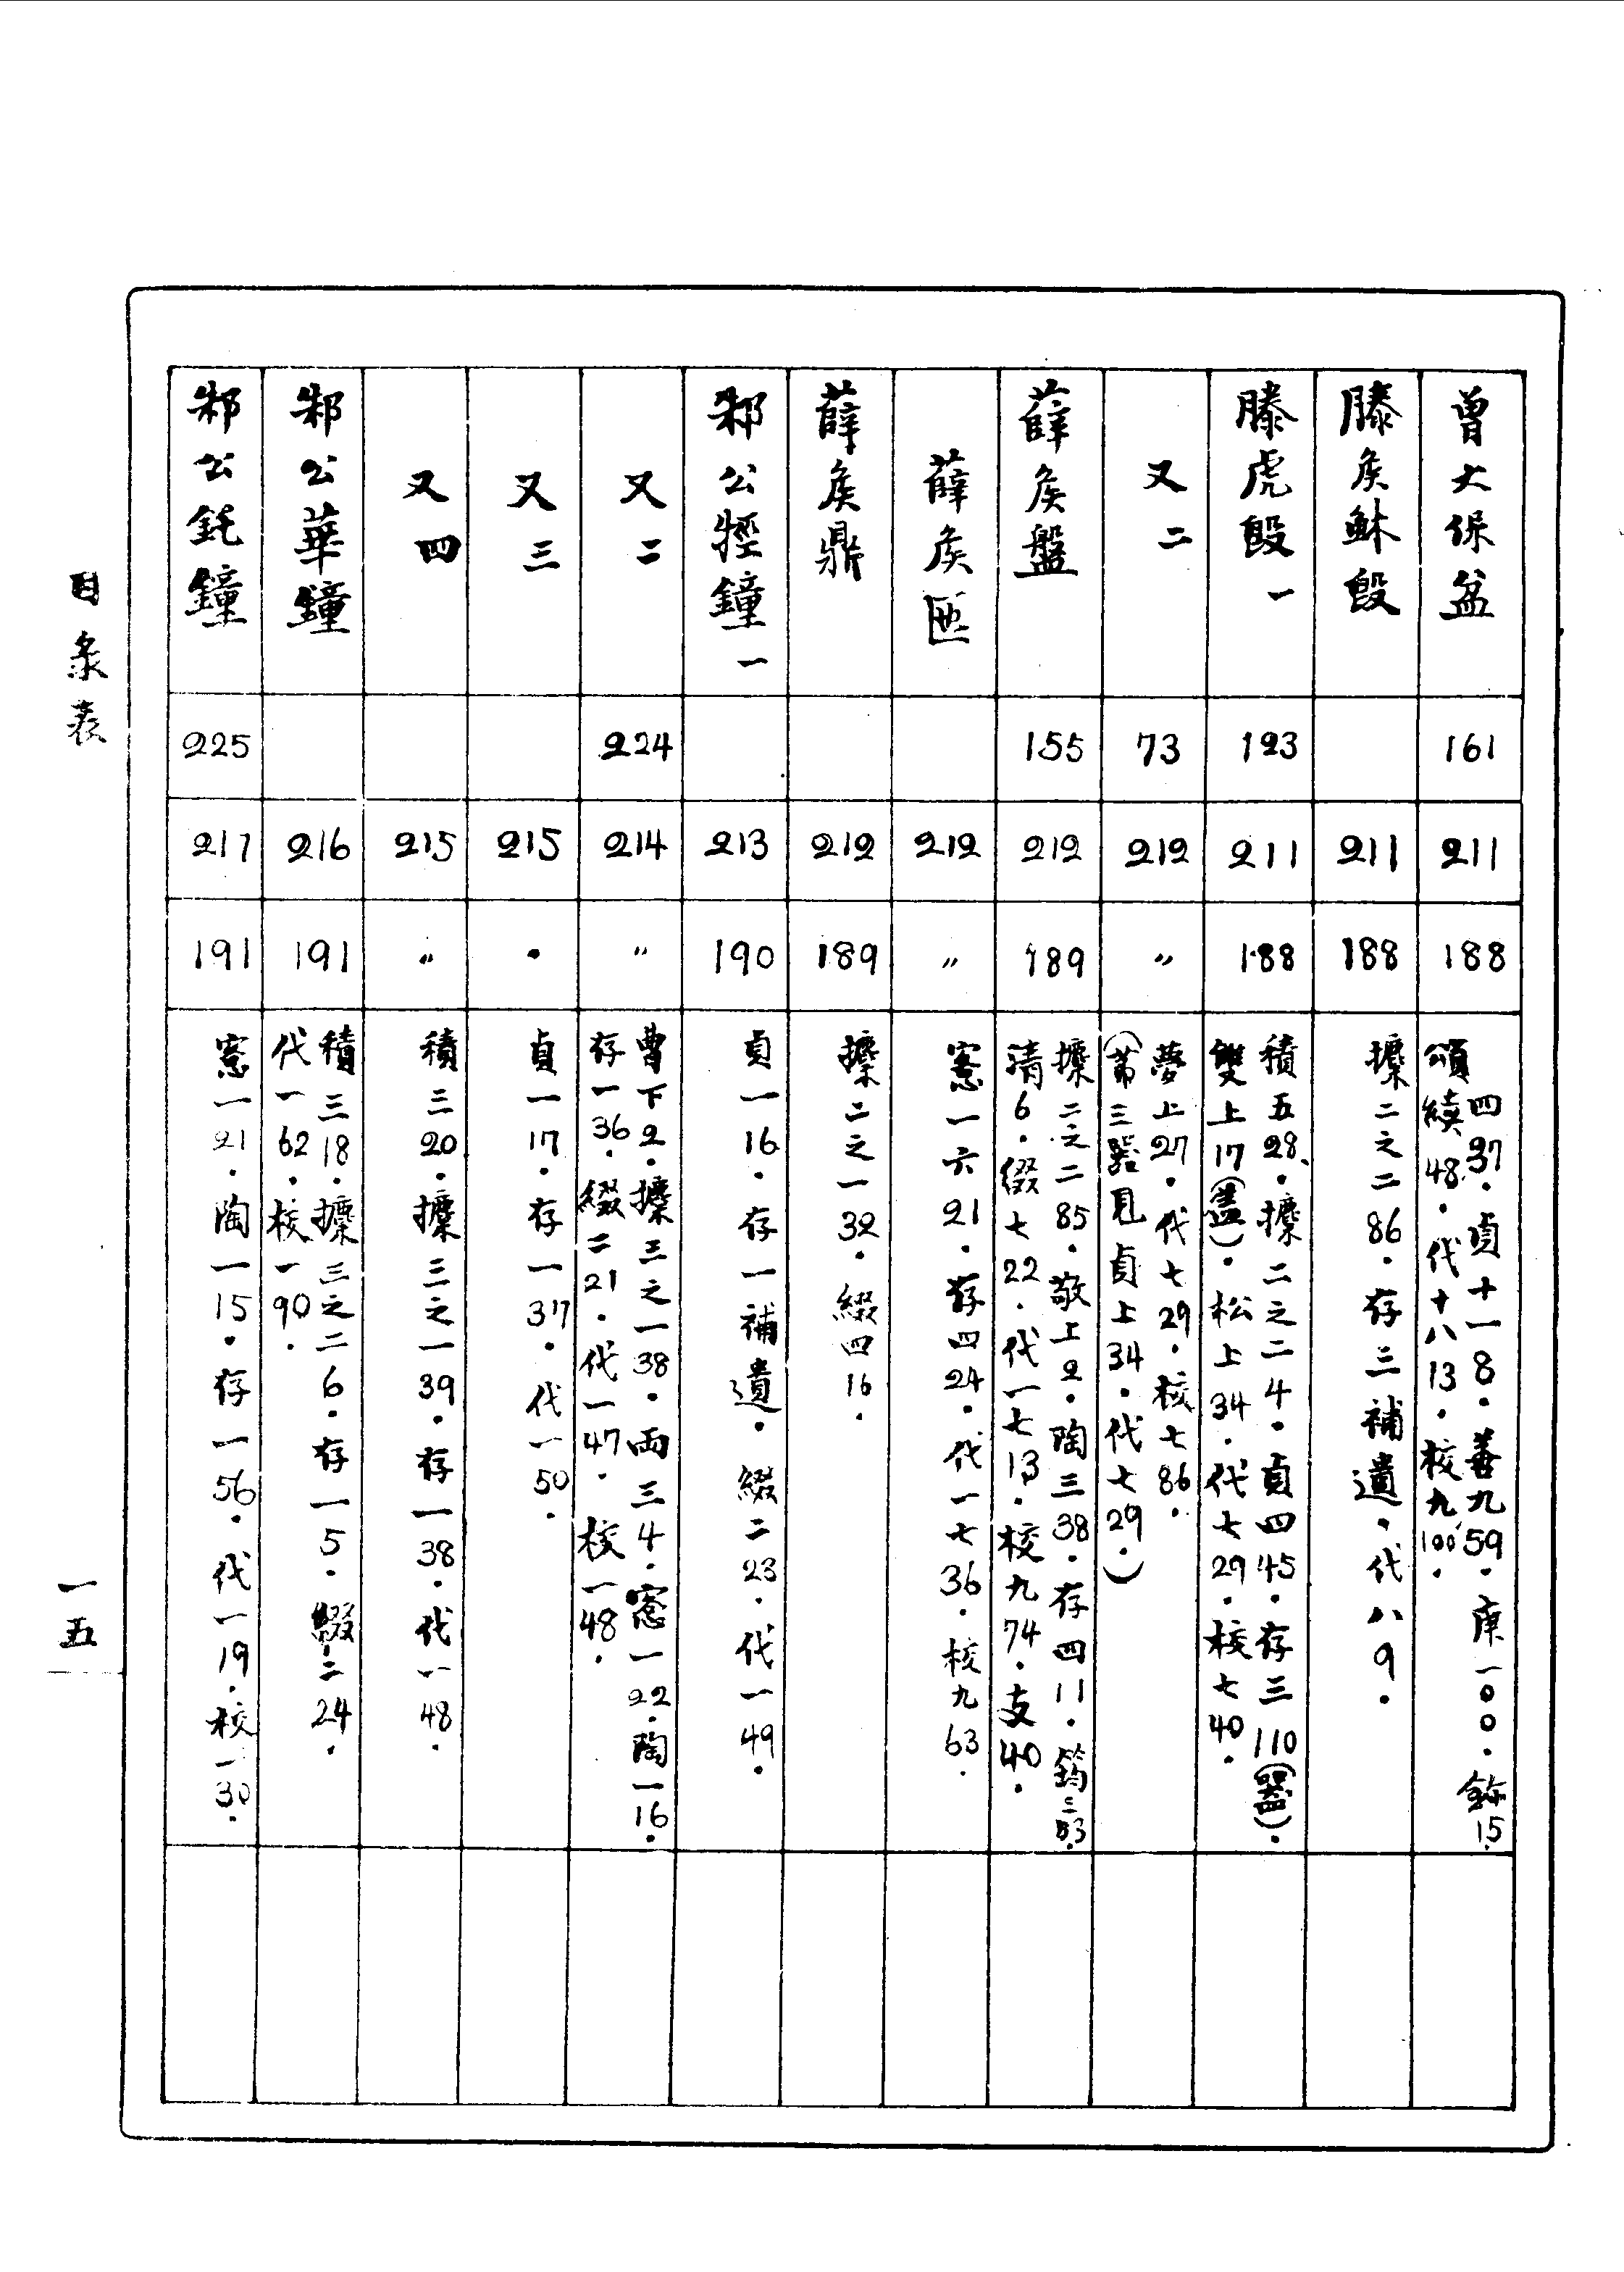 曾大保盆
161
211
188
四37．貞十一8．善九59．庚一〇〇．銉15．
頌續48．代十八13．校九100．
滕矦穌𣪘
211
188
攈二之二86．存三補遺．代八9．
滕虎𣪘一
123
211
188
積五28．攈二之二4．貞四45．存三110（器）．
雙上17（蓋）．松上34．代七29．校七40．
又二
73
212
〃
夢上27．代七29．校七86．
（第三器見貞上34．代七29．）
薛矦盤
155
212
189
攈二之二85．敬上2．陶三38．存四11．筠三53．
清6．綴七22．代一七13．校九74．支40．
薛矦匜
212
〃
愙一六21．存四24．代一七36．校九63．
薛矦鼎
212
189
攈二之一32．綴四16．
邾公牼鐘一
213
190
貞一16．存一補遺．綴二23．代一49．
又二
224
214
〃
曹下2．攈三之一38．兩三4．愙一22．陶一16．
存一36．綴二21．代一47．校一48．
又三
215
〃
貞一17．存一37．代一50．
又四
215
〃
積三20．攈三之一39．存一38．代一48．
邾公華鐘
216
191
積三18．攈三之二6．存一5．綴二24．
代一62．校一90．
邾公釛鐘
225
217
191
愙一21．陶一15．存一56．代一19．校一30．
目彔表
一五